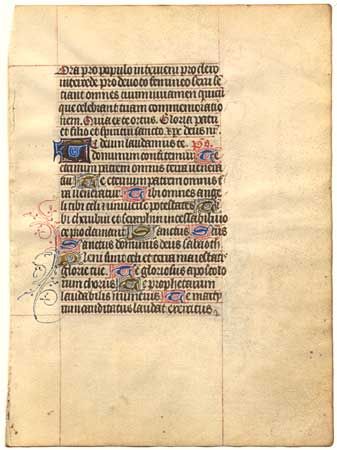 Ora pro populo interveni pro clero
intercede pro devoto femineo sexu sen
tiant omnes tuum iuvamen quicu
que celebrant tuam commemoratio
nem. Quia ex te ortus. Gloria patri
et filio et spiritui sancto. deus
Te deum laudamus te ps
dominum confitemur Te
eternum patrem omnis terra venera
tur Te eternum patrem omnis t
venera Tibi omnes ange
li tibi celi et universe potestates Ti
bi cherubin et seraphin incessabili vo
ce proclamant Sanctus San
Sanctus dominus deus sabaoth
Pleni sunt celi et terra maiestatis
glorie tue Te gloriosus apostolo
rum chorus Te prophetarum
laudabilis numerus Te marty
rum candidatus laudat exercitus